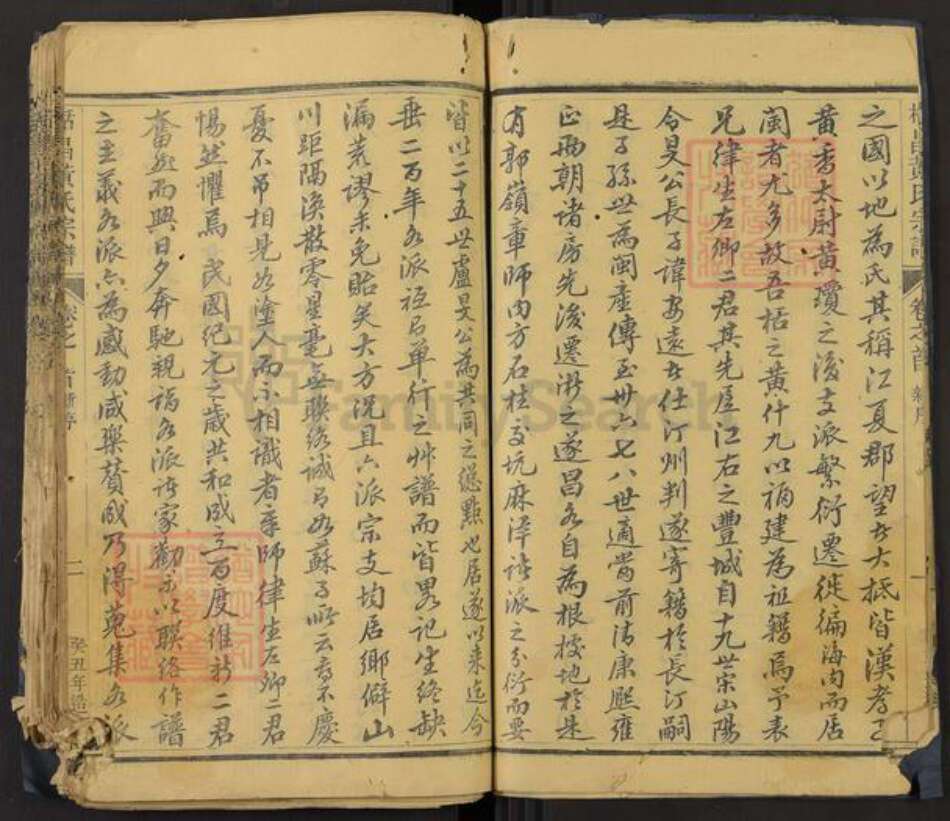 之國以地為氏其稱江夏郡望者大抵皆漢孝子
黃香太尉黃瓊之後支派繁衍遷徙徧海內而居
閩者尤多故吾括之黃什九以福建為祖籍焉予表
兄律生左卿二君其先居江右之豐城自十九世宋山陽
令旻公長子諱安遠者仕汀州判遂寄籍於長汀嗣
是子孫世為閩產傳至卅六七八世適當前清康熙雍
正兩朝諸房先後遷浙之遂昌各自為根據地於是
有郭嶺葦師內方石柱交坑麻洋諸派之分衍而要
皆以二十五世盧旻公為共同之總點也居遂以來迄今
垂二百年各派祖馬單行之艸譜而皆畧記生終缺
漏荒謬未免貽笑大方況且六派宗支均居鄉僻山
川距隔渙散零星毫無聯絡誠有如蘇子所云喜不慶
憂不弔相見如塗人而不相識者幸師律生左卿二君
惕然懼焉 民國紀元之歲共和成立百度維新二君
奮然而興日夕奔馳親詣各派諸家勸示以聯絡作譜
之主義各派亦為感動咸樂贊成乃得蒐集各派
括昌黃氏宗譜
卷之首 新序
一
二
癸丑年造
FamilySearch